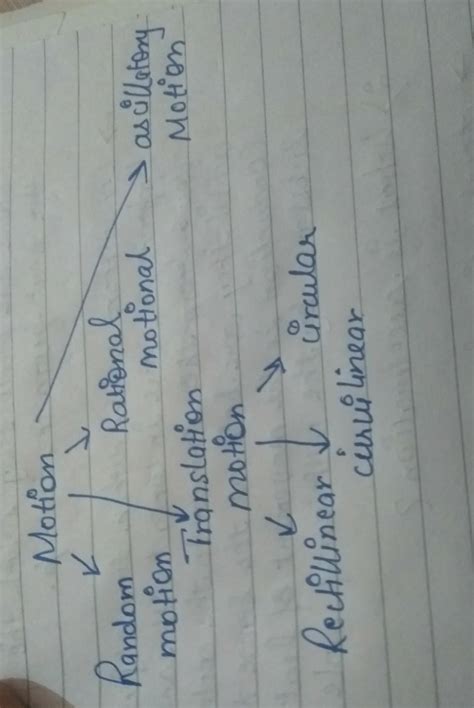 Motion
Random
motion
Translation
motion
Rational
motional
ascillatory
Motion
Rectillinear
curvilinear
circular